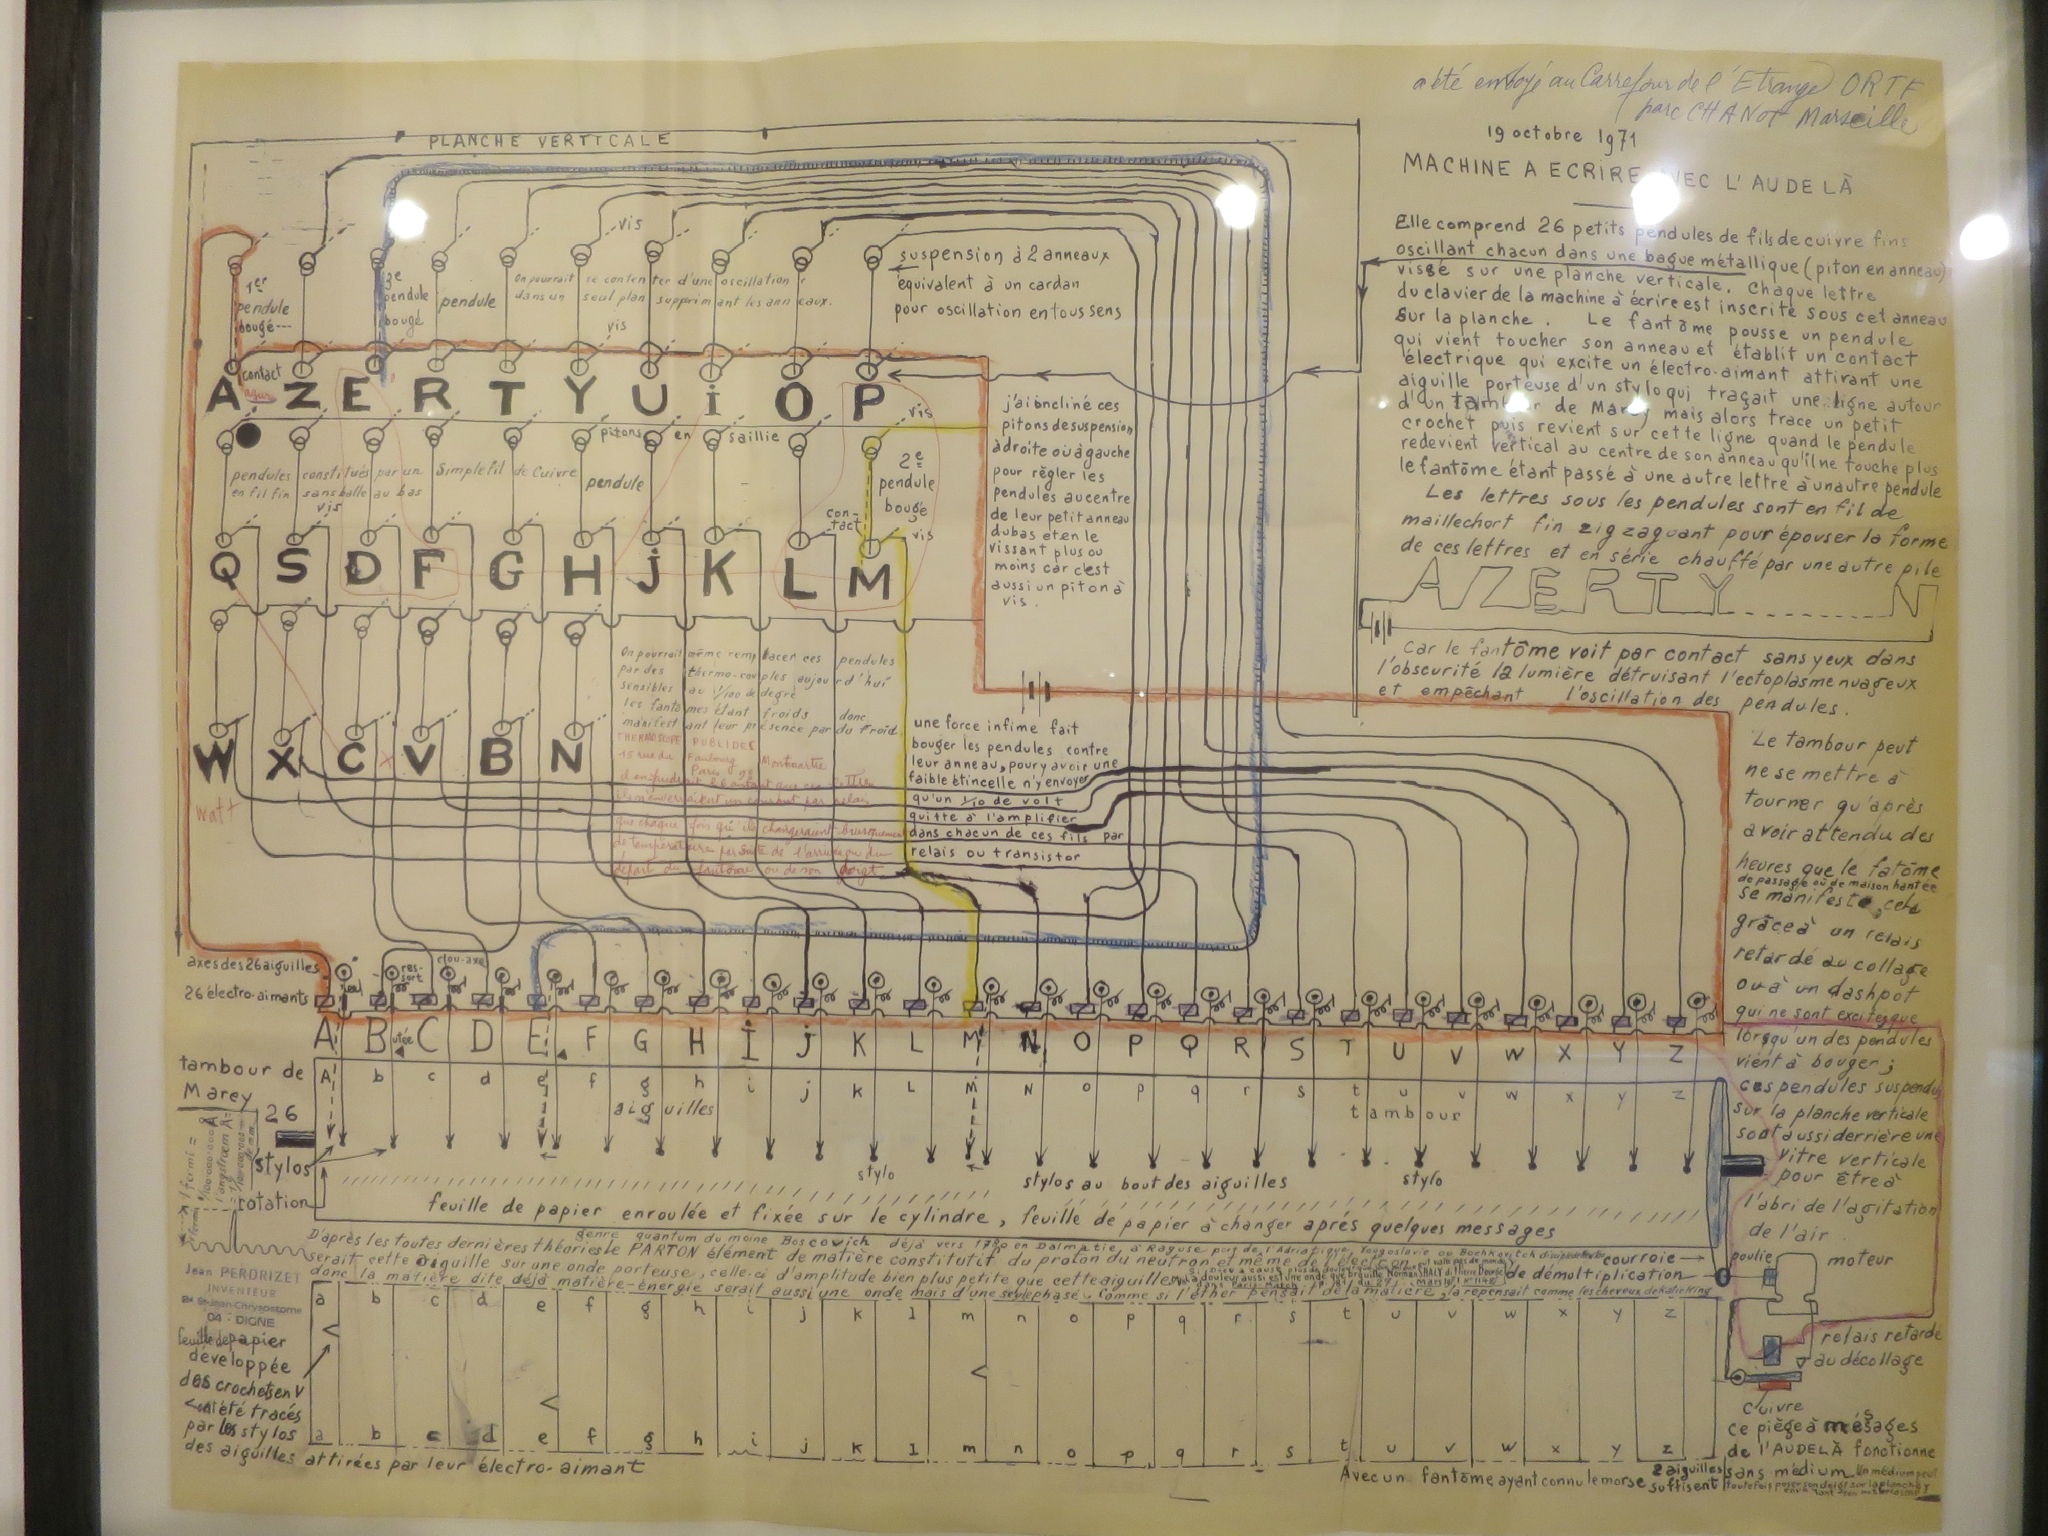 a été envoyé au Carrefour de l'Etrange ORTF
parc CHANOT Marseille
19 octobre 1971
MACHINE A ECRIRE AVEC L'AUDELÀ
PLANCHE VERTICALE
Elle comprend 26 petits pendules de fils de cuivre fins
oscillant chacun dans une bague métallique (piton en anneau)
vissé sur une planche verticale. Chaque lettre
du clavier de la machine à écrire est inscrite sous cet anneau
sur la planche. Le fantôme pousse un pendule
qui vient toucher son anneau et établit un contact
électrique qui excite un électro-aimant attirant une
aiguille porteuse d'un stylo qui traçait une ligne autour
d'un tambour de Marey mais alors trace un petit
crochet puis revient sur cette ligne quand le pendule
redevient vertical au centre de son anneau qu'il ne touche plus
le fantôme étant passé à une autre lettre à un autre pendule
Les lettres sous les pendules sont en fil de
maillechort fin zigzaguant pour épouser la forme
de ces lettres et en série chauffé par une autre pile
AZERTY N
Car le fantôme voit par contact sans yeux dans
l'obscurité la lumière détruisant l'ectoplasme nuageux
et empêchant l'oscillation des pendules.
Le tambour peut
ne se mettre à
tourner qu'après
avoir attendu des
heures que le fatôme
de passage ou de maison hantée
se manifeste, cela
grâce à un relais
retardé au collage
ou à un dashpot
qui ne sont excités que
lorsqu'un des pendules
vient à bouger;
ces pendules suspendus
sur la planche verticale
sont aussi derrière une
vitre verticale
pour être à
l'abri de l'agitation
de l'air
vis
suspension à 2 anneaux
équivalent à un cardan
pour oscillation en tous sens
1er
pendule
bougé
3e
pendule
bougé
pendule
On pourrait se contenter d'une oscillation
dans un seul plan supprimant les anneaux.
vis
contact
A Z E R T Y U i O P
vis
pitons en saillie
pendules constitués par un simple fil de cuivre
en fil fin sans balle au bas
pendule
vis
2e
pendule
bougé
contact
vis
j'ai incliné ces
pitons de suspension
à droite ou à gauche
pour règler les
pendules au centre
de leur petit anneau
du bas et en le
vissant plus ou
moins car c'est
aussi un piton à
vis.
Q S D F G H j K L M
On pourrait même remplacer ces pendules
par des thermo-couples aujourd'hui
sensibles au 1/100 de degré
les fantômes étant froids donc
manifestant leur présence par du froid.
THERMOSCOPE PUBLIDES
15 rue du Faubourg Montmartre
Paris
que chaque fois qu'ils changeraient brusquement
de température par suite de l'arrivée ou du
départ du fantôme ou de son doigt
une force infime fait
bouger les pendules contre
leur anneau, pour y avoir une
faible étincelle n'y envoyer
qu'un 1/10 de volt
quitte à l'amplifier
dans chacun de ces fils par
relais ou transistor
W X C V B N
watt
axes des 26 aiguilles
ressort
clou-axe
26 électro-aimants
A B C D E F G H I j K L M N O P Q R S T U V W X Y Z
butée
A b c d e f g h i j k L M N o p q r s t u v w x y z
aiguilles
tambour
tambour de
Marey
26
stylos
rotation
stylo
stylos au bout des aiguilles
stylo
feuille de papier enroulée et fixée sur le cylindre, feuille de papier à changer après quelques messages
genre quantum du moine Boscowich déjà vers 1780 en Dalmatie, à Raguse
D'après les toutes dernières théories le PARTON élément de matière constitutif du proton du neutron et même de l'électron
serait cette aiguille sur une onde porteuse, celle-ci d'amplitude bien plus petite que cette aiguille
donc la matière dite déjà matière-énergie serait aussi une onde mais d'une seule phase. Comme si l'éther pensait de la matière, la repensait comme les cheveux de Katie King
courroie
de démultiplication
poulie
moteur
relais retardé
au décollage
cuivre
Jean PERDRIZET
INVENTEUR
04 - DIGNE
feuille de papier
développée
des crochets en V
ont été tracés
par les stylos
des aiguilles attirées par leur électro-aimant
a b c d e f g h i j k l m n o p q r s t u v w x y z
a b c d e f g h i j k l m n o p q r s t u v w x y z
ce piège à mésages
de l'AUDELÀ fonctionne
sans médium
Avec un fantôme ayant connu le morse 2 aiguilles suffisent